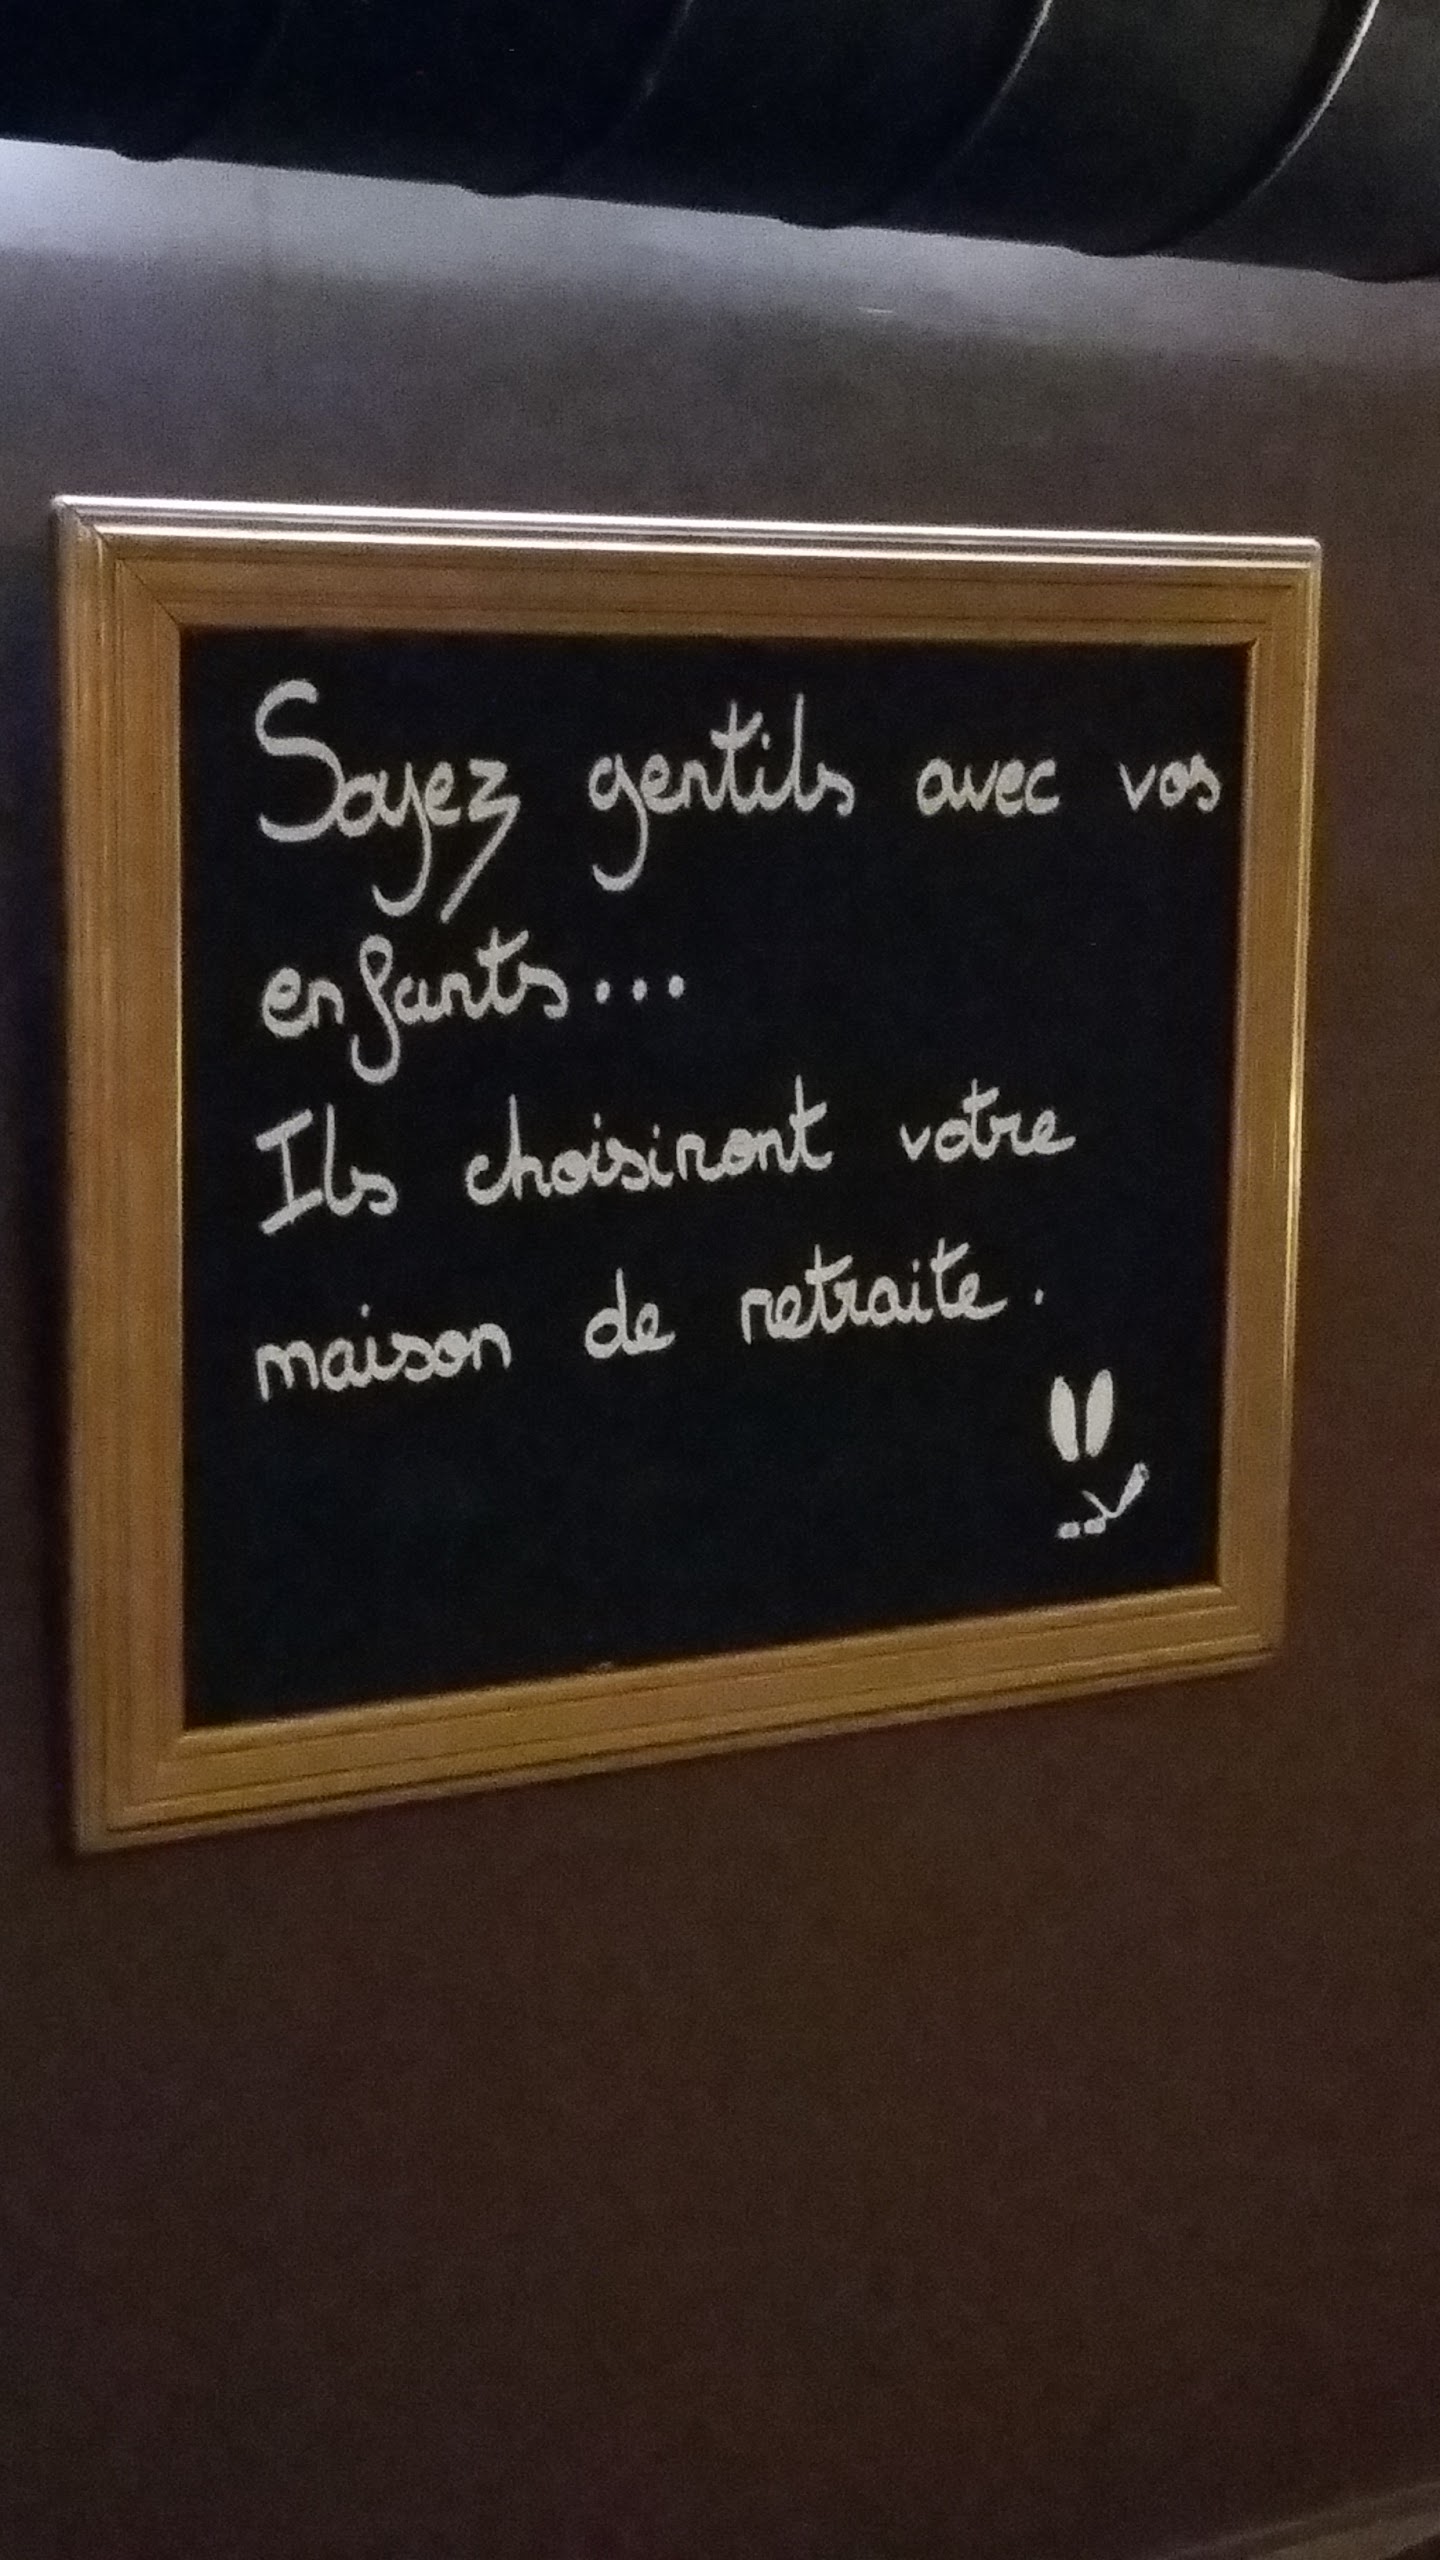 Soyez gentils avec vos
enfants...
Ils choisiront votre
maison de retraite.